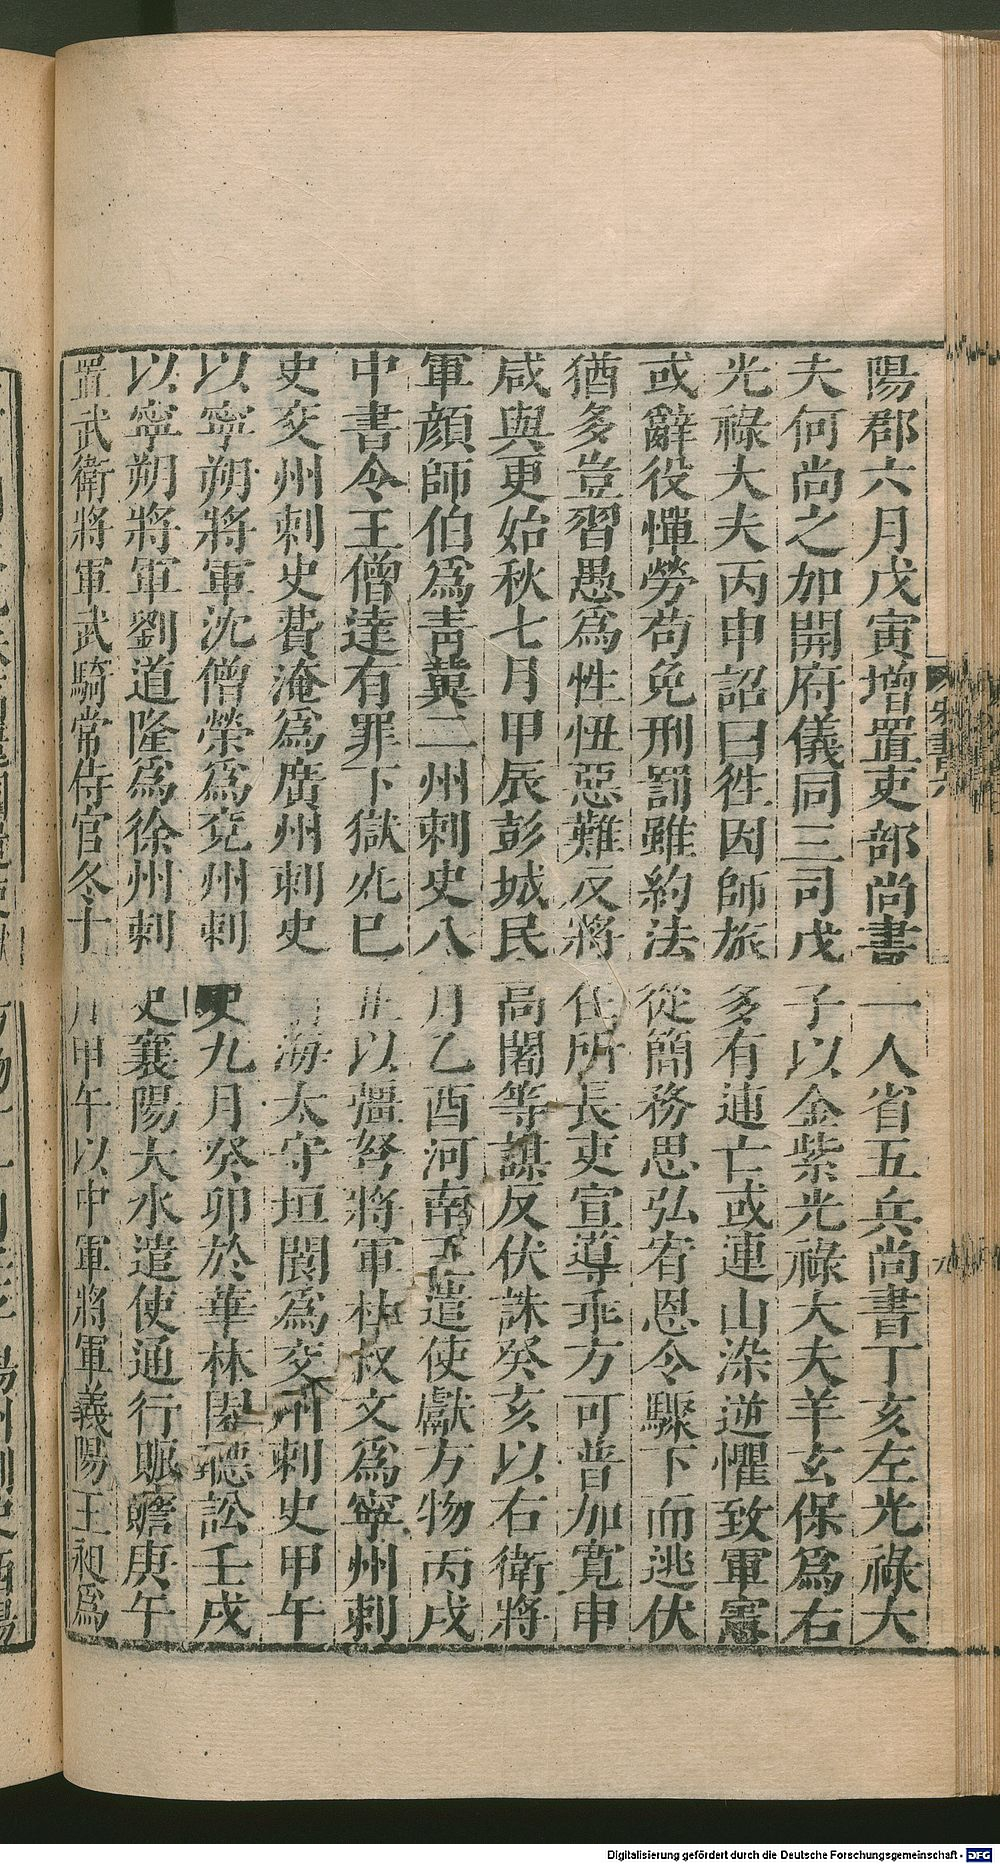 陽郡六月戊寅增置吏部尚書一人省五兵尚書丁亥左光祿大
夫何尚之加開府儀同三司戊子以金紫光祿大夫羊玄保爲右
光祿大夫丙申詔曰徃因師旅多有逋亡或連山染逆懼致軍憲
或辭役憚勞苟免刑罰雖約法從簡務思弘宥恩令驟下而逃伏
猶多豈習愚爲性忸惡難反將在所長吏宣導乖方可普加寬申
咸與更始秋七月甲辰彭城民高闍等謀反伏誅癸亥以右衛將
軍顏師伯爲青冀二州刺史八月乙酉河南王遣使獻方物丙戌
中書令王僧達有罪下獄死巳丑以彊弩將軍杜叔文爲寧州刺
史交州刺史費淹爲廣州刺史南海太守垣閬爲交州刺史甲午
以寧朔將軍沈僧榮爲兗州刺史九月癸卯於華林園聽訟壬戌
以寧朔將軍劉道隆爲徐州刺史襄陽大水遣使通行賑贍庚午
置武衛將軍武騎常侍官冬十月甲午以中軍將軍義陽王昶爲
Digitalisierung gefördert durch die Deutsche Forschungsgemeinschaft - DFG